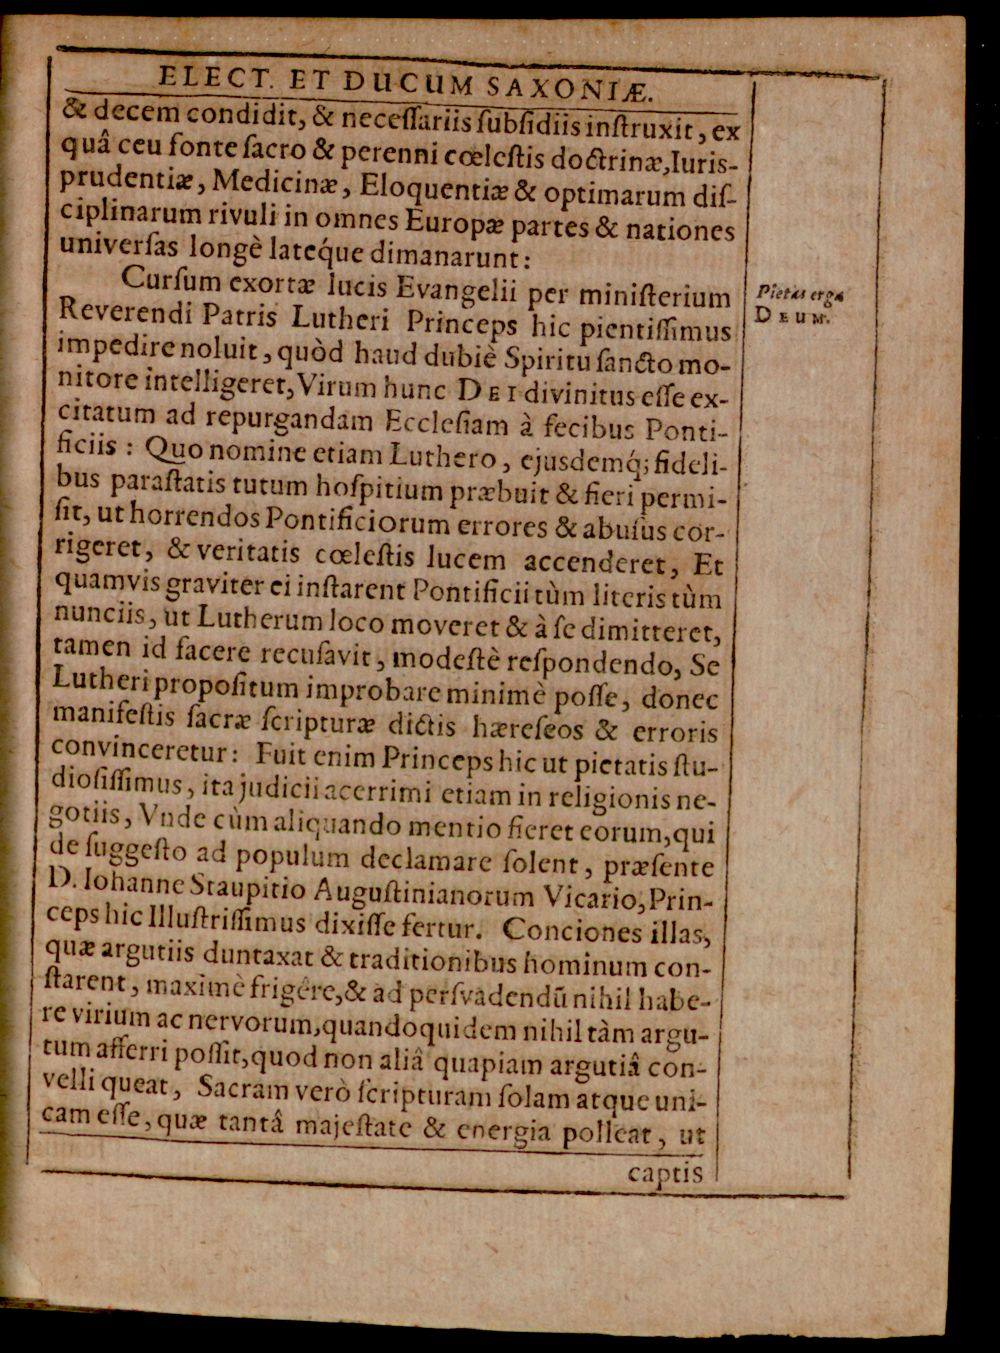 ELECT. ET DUCUM SAXONIÆ.
& decem condidit, & neceſſariis ſubſidiis inſtruxit, ex
quâ ceu fonte ſacro & perenni cœleſtis doctrinæ, Iuris-
prudentiæ, Medicinæ, Eloquentiæ & optimarum diſ-
ciplinarum rivuli in omnes Europæ partes & nationes
univerſas longè latéque dimanarunt:
Curſum exortæ lucis Evangelii per miniſterium
Reverendi Patris Lutheri Princeps hic pientiſſimus
impedire noluit, quòd haud dubiè Spiritu ſancto mo-
nitore intelligeret, Virum hunc DEI divinitus eſſe ex-
citatum ad repurgandam Eccleſiam à fecibus Ponti-
ficiis: Quo nomine etiam Luthero, ejusdemq́; fideli-
bus paraſtatis tutum hoſpitium præbuit & fieri permi-
ſit, ut horrendos Pontificiorum errores & abuſus cor-
rigeret, & veritatis cœleſtis lucem accenderet, Et
quamvis graviter ei inſtarent Pontificii tùm literis tùm
nunciis, ut Lutherum loco moveret & à ſe dimitteret,
tamen id facere recuſavit, modeſtè reſpondendo, Se
Lutheri propoſitum improbare minimè poſſe, donec
manifeſtis ſacræ ſcripturæ dictis hæreſeos & erroris
convinceretur: Fuit enim Princeps hic ut pietatis ſtu-
dioſiſſimus, ita judicii acerrimi etiam in religionis ne-
gotiis, Vnde cùm aliquando mentio fieret eorum, qui
de ſuggeſto ad populum declamare ſolent, præſente
D. Iohanne Staupitio Auguſtinianorum Vicario, Prin-
ceps hic Illuſtriſſimus dixiſſe fertur. Conciones illas,
quæ argutiis duntaxat & traditionibus hominum con-
ſtarent, maximè frigére, & ad perſvadendũ nihil habe-
re virium ac nervorum, quandoquidem nihil tàm argu-
tum afferri poſſit, quod non aliâ quapiam argutiâ con-
velli queat, Sacram verò ſcripturam ſolam atque uni-
cam eſſe, quæ tantâ majeſtate & energia polleat, ut
captis
Pietas erga
DEUM.